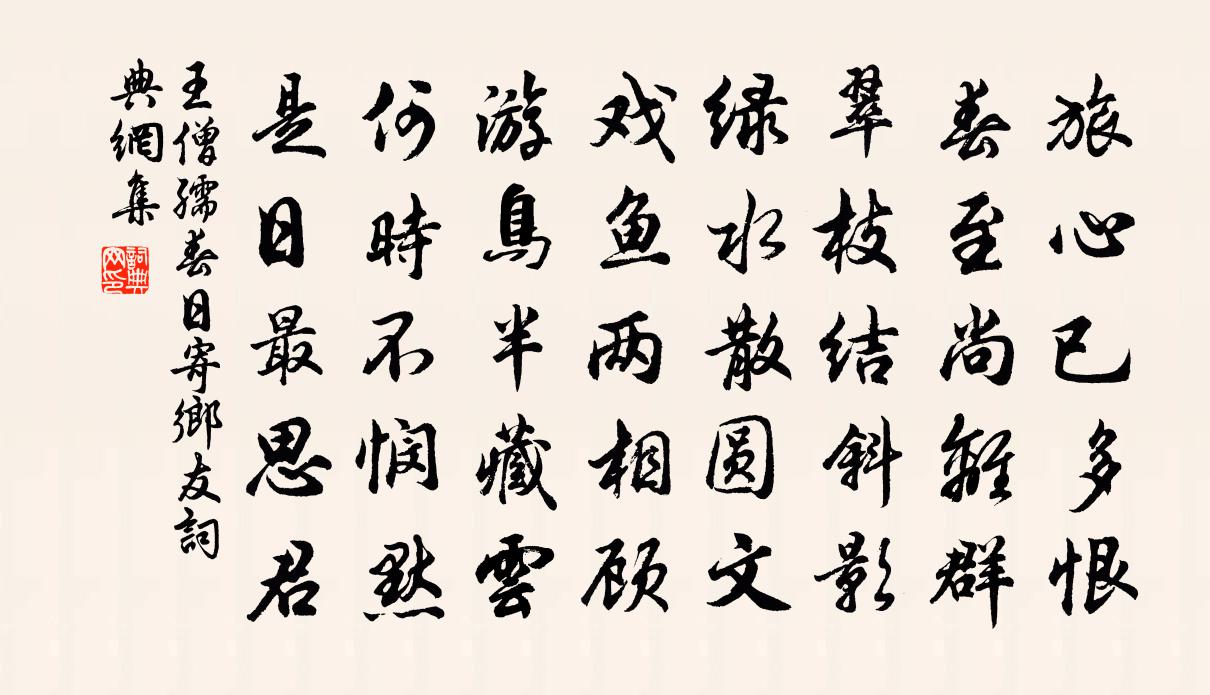 旅心已多恨
春至尚離群
翠枝结斜影
绿水散圆文
戏鱼两相顾
游鳥半藏雲
何時不悯默
是日最思君
王僧孺春日寄鄉友詞
典網集
詞典
网印